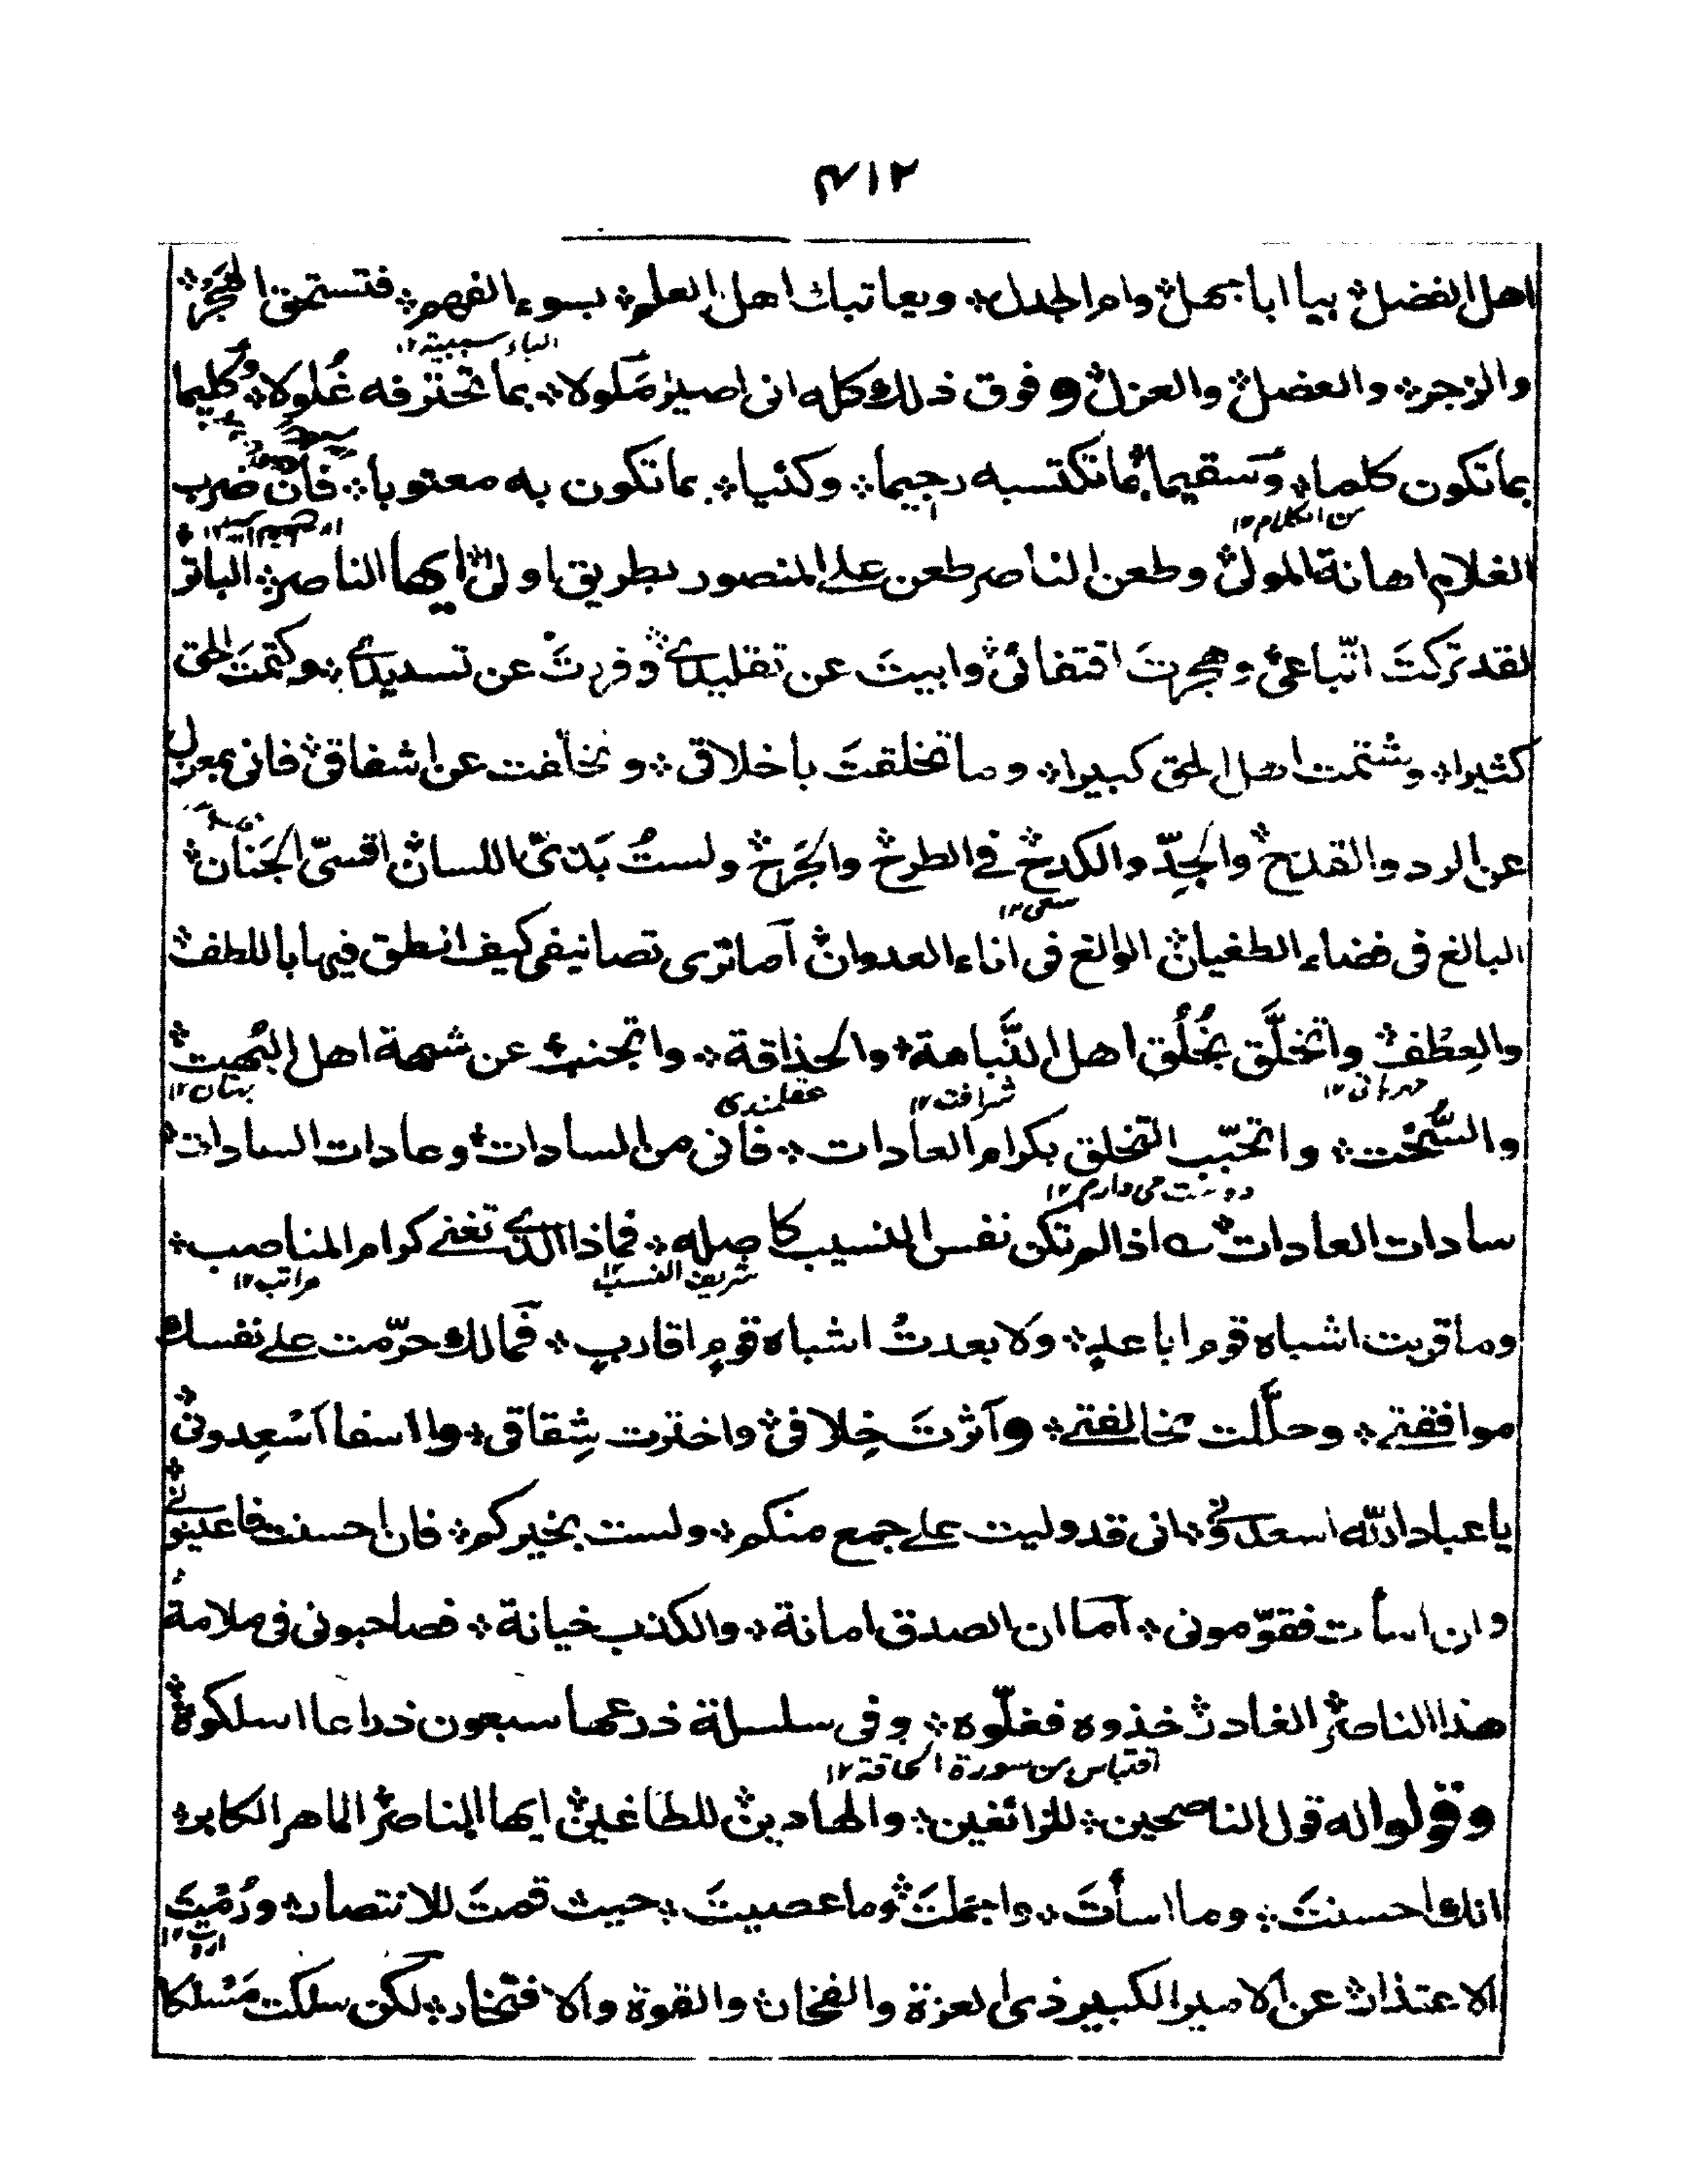 ٤١٢
اهل الفضل ؞ بيا ابا جهل ؞ وام الجدل ؞ ويعاتبك اهل العلم ؞ بسوء الفهم ؞ فتستحق الهجر ؞
الباء سببية ١٢
والزجر ؞ والعضل ؞ والعزل ؞ وفوق ذلك كله انى اصير مَلولا ؞ بما تحترفه غُلولا ؞ وكليما
بما تكون كلما ؞ وسقيما بما تكتسبه رجيما ؞ وكئيا ؞ بما تكون به معتوبا ؞ فان ضرب
من الكلام ١٢
الغلام اهانة المولى ؞ وطعن الناصر طعن على المنصور بطريق اولى ؞ ايها الناصر ؞ الباتر
لقد تركتَ اتّباعى وهجرتَ اقتفائى ؞ وابيتَ عن تقليدى ؞ وفررتَ عن تسديدى ؞ وكتمتَ الحق
كثيرا ؞ وشتمت اهل الحق كبيرا ؞ وما تخلقتَ باخلاقى ؞ وتخلفت عن اشفاقى ؞ فانى بمعزل
عن الرد والقدح ؞ والجِدّ والكدح ؞ فى الطرح ؞ والجَرح ؞ ولستُ بَذىّ اللسان ؞ اقسىّ الجَنان ؞
سعى ١٢
البالغ فى فضاء الطغيان ؞ الوالغ فى اناء العدوان ؞ آما ترى تصانيفى كيف انطق فيها باللطف ؞
والعِطْف ؞ واتخلَّق بخُلُق اهل النَّباهة ؞ والحذاقة ؞ واتجنب عن شيمة اهل البُهت ؞
مهربانى ١٢ شرافت ١٢ عقلمندى بهتان ١٢
والسُّحْت ؞ واتحبّب التخلق بكرام العادات ؞ فانى من السادات ؞ وعادات السادات ؞
دوست مى دارم ١٢
سادات العادات ؞ ؎ اذا لم تكن نفس النسيب كاصله ؞ فماذا الذى تغنى كرام المناصب ؞
شريف النسب ١٢ مراتب ١٢
وما قربت اشباه قوم اباعدٍ ؞ ولا بعدتُ اشباه قومٍ اقاربٍ ؞ فمالك حرّمت على نفسك
موافقتى ؞ وحلَّلت مخالفتى ؞ وآثرتَ خِلافى ؞ واخترت شِقاقى ؞ وااسفا اَسْعِدونى ؞
يا عباد الله اسعدونى ؞ انى قد وليت على جمع منكم ؞ ولست بخيركم ؞ فان احسنت فاعينونى ؞
وان اسأت فقوّمونى ؞ آما ان الصدق امانة ؞ والكذب خيانة ؞ فصاحبونى فى ملامة
هذا الناصر ؞ الغادر ؞ خذوه فغلّوه ؞ وفى سلسلة ذرعها سبعون ذراعا اسلكوه ؞
اقتباس من سورة الحاقة ١٢
وقولوا له قول الناصحين ؞ للزائفين ؞ والهادين ؞ للطاغين ؞ ايها الناصر ؞ الماهر الكابر ؞
انك احسنتَ ؞ وما اسأتَ ؞ واجملتَ ؞ وما عصيتَ ؞ حيث قمتَ للانتصار ؞ ورُمْتَ
الاعتذار ؞ عن الامير الكبير ذى العزة والفخار ؞ والقوة والافتخار ؞ لكن سلكت مَسْلكا